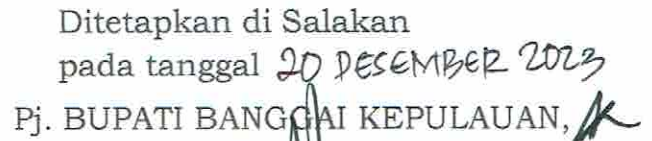 Ditetapkan di Salakan
pada tanggal 20 DESEMBER 2023
Pj. BUPATI BANGGAI KEPULAUAN,